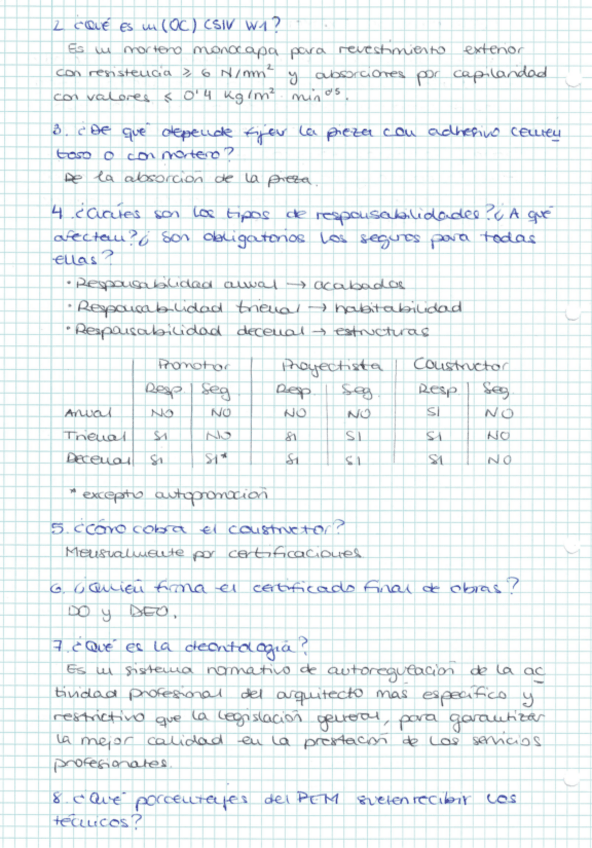 2. ¿Qué es un (OC) CSIV W1?
Es un mortero monocapa para revestimiento exterior
con resistencia ≥ 6 N/mm² y absorciones por capilaridad
con valores ≤ 0'4 Kg/m² min⁰'⁵.
3. ¿De qué depende fijar la pieza con adhesivo cemen
toso o con mortero?
De la absorción de la pieza.
4. ¿Cuáles son los tipos de responsabilidades? ¿A qué
afectan? ¿Son obligatorios los seguros para todas
ellas?
· Responsabilidad anual → acabados
· Responsabilidad trienal → habitabilidad
· Responsabilidad decenal → estructuras
Promotor Proyectista Constructor
Resp Seg Resp Seg Resp Seg
Anual NO NO NO NO SI NO
Trienal SI NO SI SI SI NO
Decenal SI SI* SI SI SI NO
* excepto autopromoción
5. ¿Cómo cobra el constructor?
Mensualmente por certificaciones
6. ¿Quién firma el certificado final de obras?
DO y DEO.
7. ¿Qué es la deontología?
Es un sistema normativo de autoregulación de la ac
tividad profesional del arquitecto mas específico y
restrictivo que la legislación general, para garantizar
la mejor calidad en la prestación de los servicios
profesionales.
8. ¿Qué porcentajes del PEM suelen recibir los
técnicos?